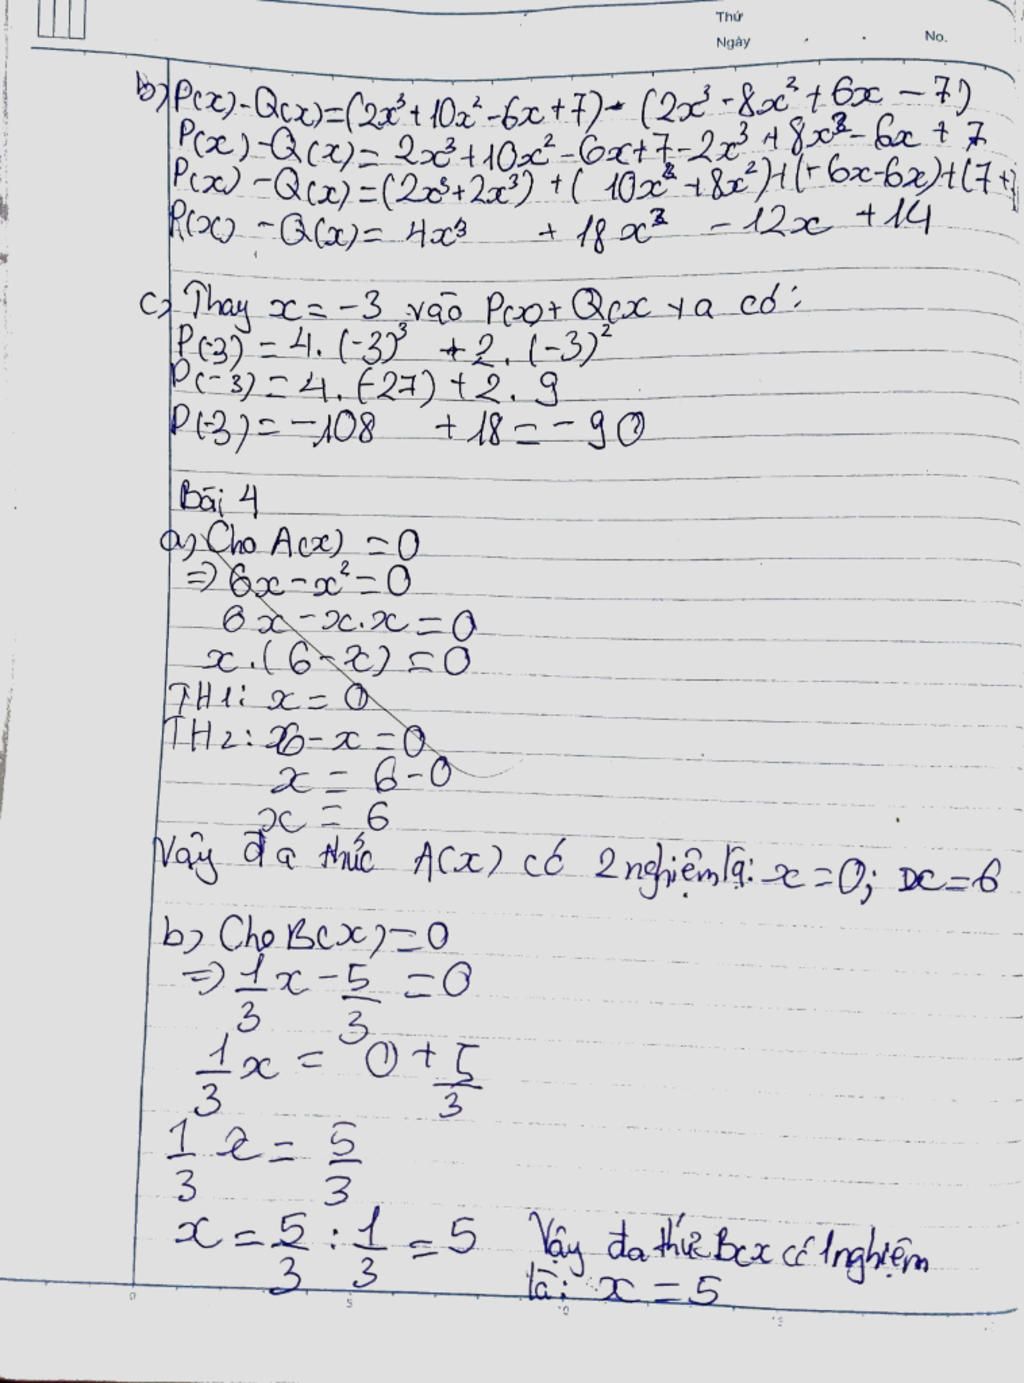 Thứ
Ngày
No.
b) P(x)-Q(x)=(2x³+10x²-6x+7)-(2x³-8x²+6x-7)
P(x)-Q(x)=2x³+10x²-6x+7-2x³+8x²-6x+7
P(x)-Q(x)=(2x³+2x³)+(10x²+8x²)+(-6x-6x)+(7+
P(x)-Q(x)=4x³ +18x² -12x +14
c) Thay x=-3 vào P(x)+Q(x ta có:
P(-3)=4.(-3)³ +2.(-3)²
P(-3)=4.(-27)+2.9
P(-3)=-108 +18=-90
Bài 4
a) Cho A(x)=0
=> 6x-x²=0
6x-x.x=0
x.(6-x)=0
TH1: x=0
TH2: 6-x=0
x=6-0
x=6
Vậy đa thức A(x) có 2 nghiệm là: x=0; x=6
b) Cho B(x)=0
=> 1/3x-5/3=0
1/3x=0+5/3
1/3x=5/3
x=5/3:1/3=5 Vậy đa thức B(x có 1 nghiệm
là: x=5
0 5 10 15